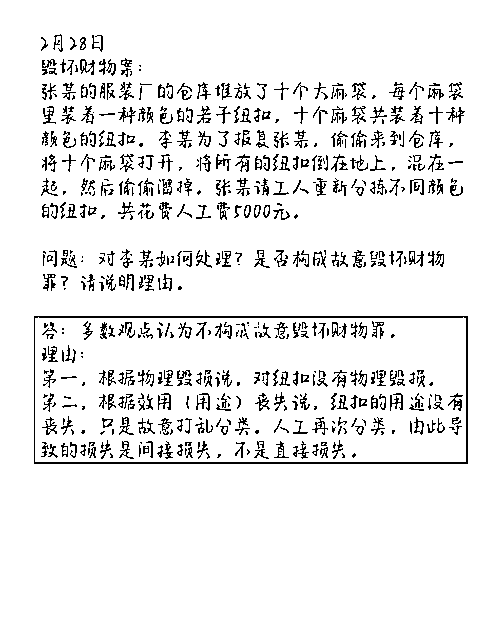 2月28日
毁坏财物案：
张某的服装厂的仓库堆放了十个大麻袋，每个麻袋
里装着一种颜色的若干纽扣，十个麻袋共装着十种
颜色的纽扣。李某为了报复张某，偷偷来到仓库，
将十个麻袋打开，将所有的纽扣倒在地上，混在一
起，然后偷偷溜掉。张某请工人重新分拣不同颜色
的纽扣，共花费人工费5000元。
问题：对李某如何处理？是否构成故意毁坏财物
罪？请说明理由。
答：多数观点认为不构成故意毁坏财物罪。
理由：
第一，根据物理毁损说，对纽扣没有物理毁损。
第二，根据效用（用途）丧失说，纽扣的用途没有
丧失，只是故意打乱分类。人工再次分类，由此导
致的损失是间接损失，不是直接损失。